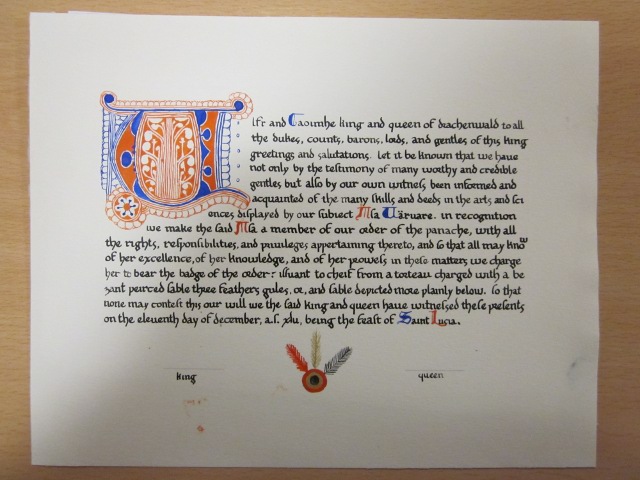 Ulfr and Caoimhe king and queen of drachenwald to all
the dukes, counts, barons, lords, and gentles of this king
greetings and salutations. Let it be known that we have
not only by the testimony of many worthy and credible
gentles but also by our own witness, been informed and
acquainted of the many skills and deeds in the arts and sci
ences displayed by our subject Aisa Wäruare. in recognition
we make the said Aisa a member of our order of the panache, with all
the rights, responsibilities, and privileges appertaining thereto, and so that all may know
of her excellence, of her knowledge, and of her prowess in these matters we charge
her to bear the badge of the order: issuant to cheif from a torteau charged with a be
sant peirced sable three feathers gules, or, and sable depicted more plainly below. so that
none may contest this our will we the said king and queen have witnessed these presents
on the eleventh day of december, a.s. xlu, being the feast of Saint Lucia.
king queen